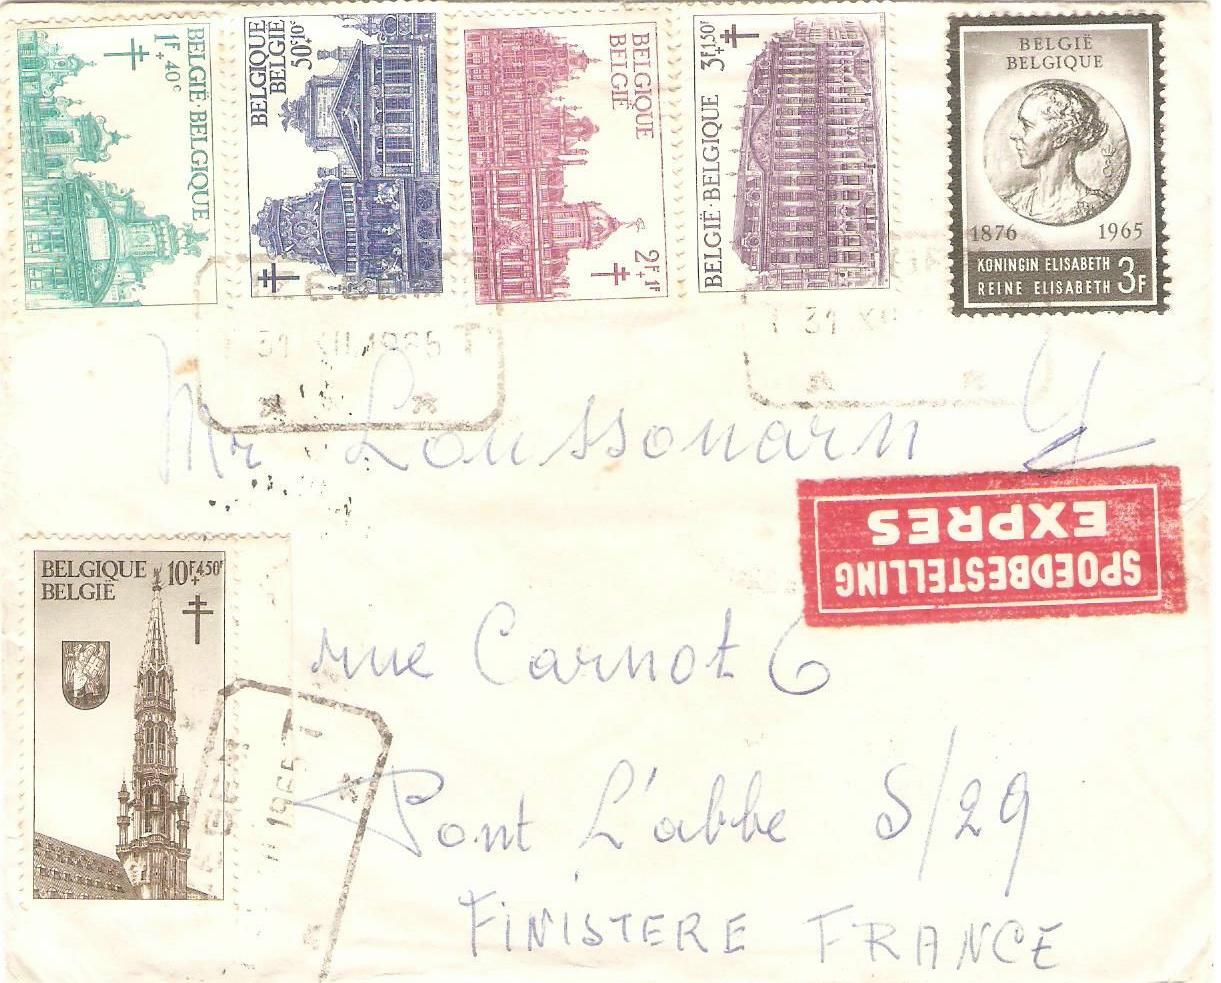 BELGIE·BELGIQUE
1F+40c
BELGIQUE
BELGIË
50c+10c
BELGIQUE
BELGIË
2F+1F
BELGIË BELGIQUE
3F+1,50F
BELGIË
BELGIQUE
1876 1965
KONINGIN ELISABETH
REINE ELISABETH 3F
31 XII 1965 T
31 XII
Mr Loussouarn Y
SPOEDBESTELLING
EXPRES
BELGIQUE 10F+4,50F
BELGIË
rue Carnot 6
II 1965 T
Pont L'abbe S/29
FINISTERE FRANCE